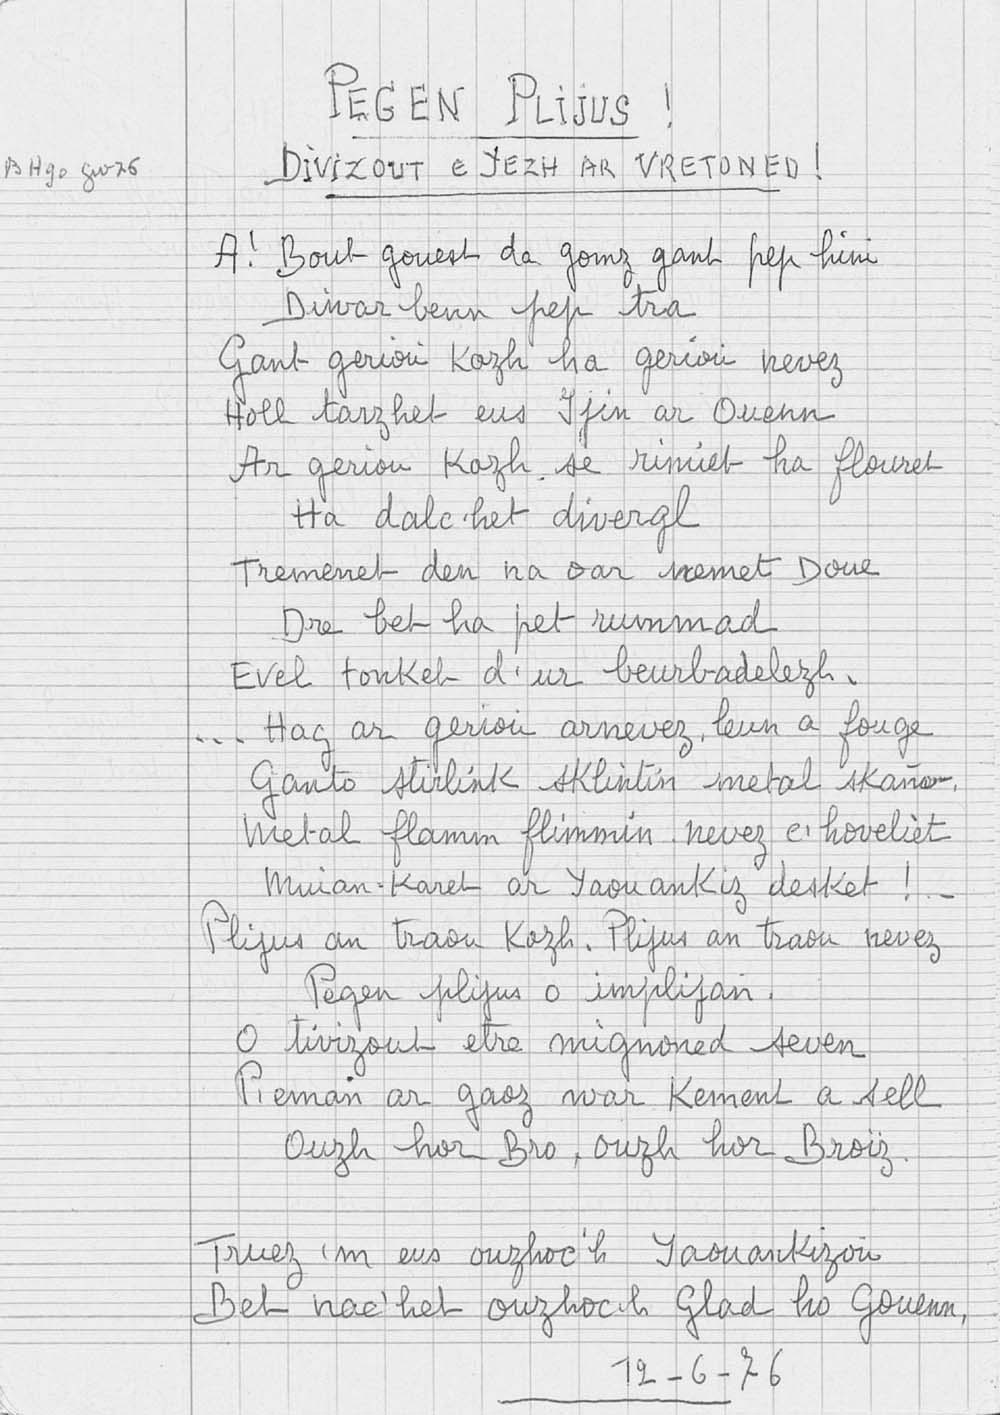 PEGEN PLIJUS !
DIVIZOUT e YEZH AR VRETONED !
A! Bout gouest da gomz gant pep hini
Diwar benn pep tra
Gant gerioù Kozh ha gerioù nevez
Holl tarzhet eus Ijin ar Ouenn
Ar geriou Kozh se rimiet ha flouret
Ha dalc'het divergl
Tremenet den na oar nemet Doue
Dre bet ha pet rummad
Evel tonket d'ur beurbadelezh.
... Hag ar gerioù arnevez, leun a fouge
Ganto stirlink sklintin metal skañv.
Metal flamm flimmin nevez c'hoveliet
Muian-Karet ar Yaouankiz desket ! _
Plijus an traou Kozh. Plijus an traou nevez
Pegen plijus o implijan.
O tivizout etre mignoned seven
Pieman ar gaoz war Kement a sell
Ouzh hor Bro, ouzh hor Broïz.
Truez 'm eus ouzhoc'h Yaouankizoù
Bet nac'het ouzhoc'h Glad ho Gouenn,
12-6-76